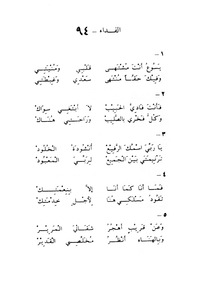 الفداء - ٩٤
- ١ -
يَسُوعُ أَنْتَ مُشْتَهَى قَلْبِي وَمُنْيَتِي
وَفِيكَ حَقًّا مُنْتَهَى سَعْدِي وَغِبْطَتِي
- ٢ -
فَأَنْتَ فَادِيَّ الحَبِيبْ لاَ أَبْتَغِي سِوَاكْ
وَكُلُّ فَخْرِي بِالصَّلِيبْ وَرَاحَتِي هُنَاكْ
- ٣ -
يَا رَبِّيَ اسْمُكَ الرَّفِيعْ أُنْشُودَةُ الخُلُودْ
تَرْنِيمَتِي بَيْنَ الجَمِيعْ لِرَبِّيَ المَعْبُودْ
- ٤ -
فَمَا أَنَا كَمَا أَنَا إِلاَّ بِنِعْمَتِكْ
تَقُودُ مَسْلَكِي هُنَا لأَجْلِ خِدْمَتِكْ
- ٥ -
وَعَنْ قَرِيبٍ أَهْجُرُ شَقَائِيَ المَرِيرْ
وَبِالْبَهَاءِ أَنْظُرُ مُخَلِّصِي القَدِيرْ